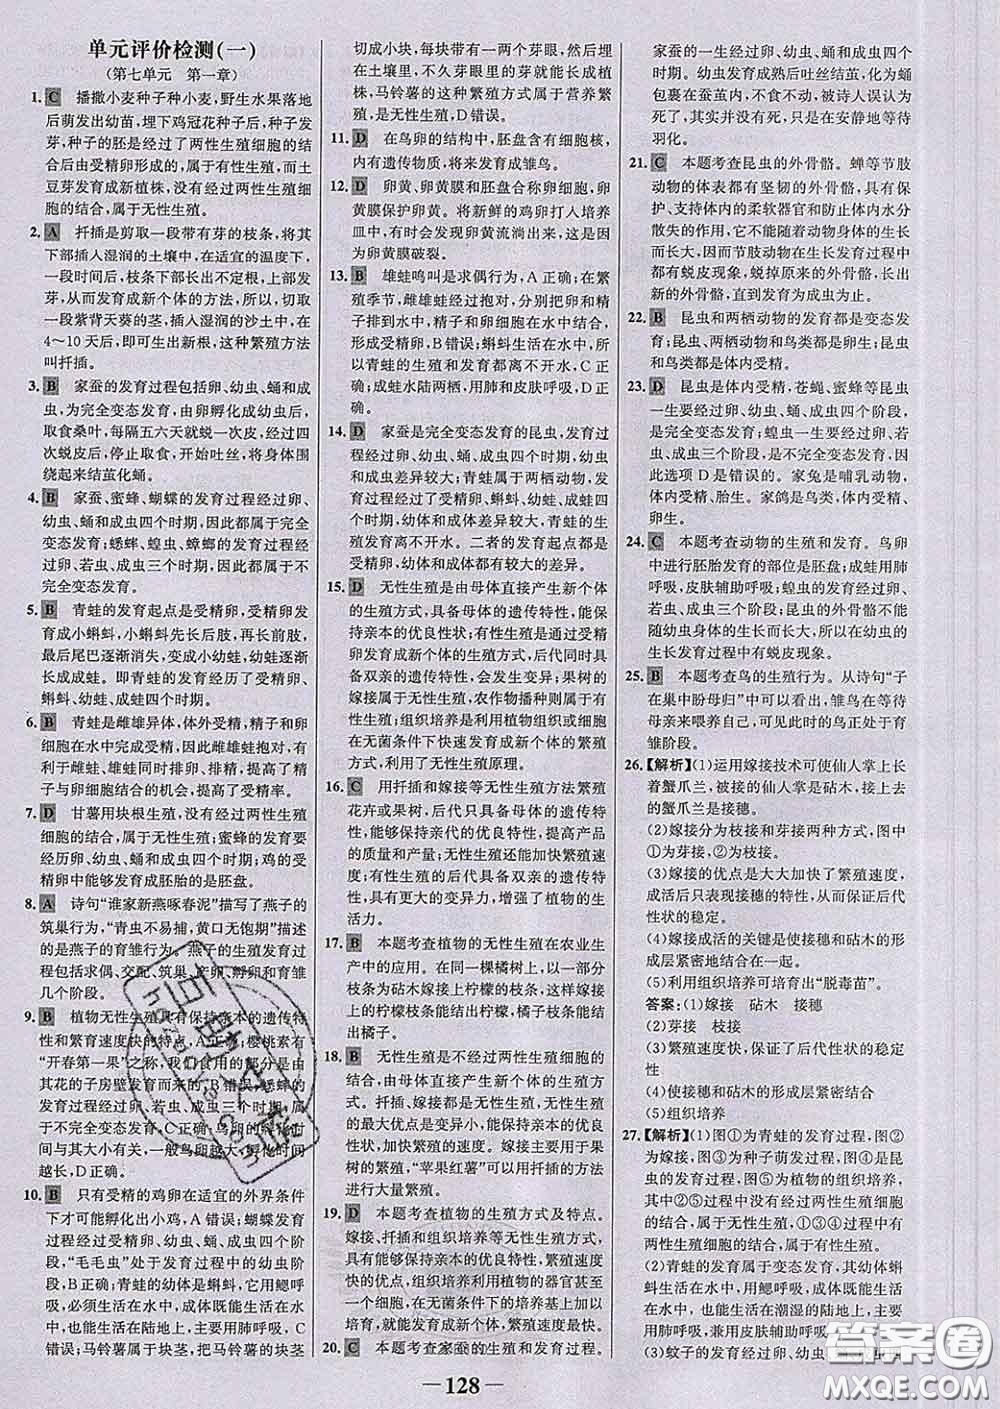 单元评价检测(一)
(第七单元　第一章)
1. C　播撒小麦种子种小麦,野生水果落地
后萌发出幼苗,埋下鸡冠花种子后,种子发
芽,种子的胚是经过了两性生殖细胞的结
合后由受精卵形成的,属于有性生殖,而土
豆芽发育成新植株,没有经过两性生殖细
胞的结合,属于无性生殖。
2. A　扦插是剪取一段带有芽的枝条,将其
下部插入湿润的土壤中,在适宜的温度下,
一段时间后,枝条下部长出不定根,上部发
芽,从而发育成新个体的方法,所以,切取
一段紫背天葵的茎,插入湿润的沙土中,在
4～10天后即可生出新根,这种繁殖方法
叫扦插。
3. B　家蚕的发育过程包括卵、幼虫、蛹和成
虫,为完全变态发育,由卵孵化成幼虫后,
取食桑叶,每隔五六天就蜕一次皮,经过4
次蜕皮后,停止取食,开始吐丝,将身体围
绕起来结茧化蛹。
4. B　家蚕、蜜蜂、蝴蝶的发育过程经过卵、
幼虫、蛹和成虫四个时期,因此都属于完全
变态发育;蟋蟀、蝗虫、蟑螂的发育过程经
过卵、若虫、成虫三个时期,因此都属于不
完全变态发育。
5. B　青蛙的发育起点是受精卵,受精卵发
育成小蝌蚪,小蝌蚪先长后肢,再长前肢,
最后尾巴逐渐消失,变成小幼蛙,幼蛙逐渐
长成成蛙。即青蛙的发育经历了受精卵、
蝌蚪、幼蛙、成蛙四个时期。
6. B　青蛙是雌雄异体,体外受精,精子和卵
细胞在水中完成受精,因此雌雄蛙抱对,有
利于雌蛙、雄蛙同时排卵、排精,提高了精
子与卵细胞结合的机会,提高了受精率。
7. D　甘薯用块根生殖,没有经过两性生殖
细胞的结合,属于无性生殖;蜜蜂的发育要
经历卵、幼虫、蛹和成虫四个时期;鸡的受
精卵中能够发育成胚胎的是胚盘。
8. A　诗句“谁家新燕啄春泥”描写了燕子的
筑巢行为,“青虫不易捕,黄口无饱期”描述
的是燕子的育雏行为。燕子的生殖发育过
程包括求偶、交配、筑巢、产卵、孵卵和育雏
几个阶段。
9. B　植物无性生殖具有保持亲本的遗传特
性和繁殖速度快的特点,A正确;樱桃素有
“开春第一果”之称,我们食用的部分是由
其花的子房壁发育而来的,B错误;蟋蟀的
发育经过卵、若虫、成虫三个阶段,属于不
完全变态发育,C正确;鸟卵的孵化时间与
其大小有关,一般鸟卵越大,孵化时间越
长,D正确。
10. B　只有受精的鸡卵在适宜的外界条件
下才可能孵化出小鸡,A错误;蝴蝶发育
过程经过受精卵、幼虫、蛹、成虫四个阶
段,“毛毛虫”处于发育过程中的幼虫阶
段,B正确;青蛙的幼体是蝌蚪,它用鳃呼
吸,必须生活在水中,成体既能生活在水
中,也能生活在陆地上,主要用肺呼吸,C
错误;马铃薯属于块茎,把马铃薯的块茎
切成小块,每块带有一两个芽眼,然后埋
在土壤里,不久芽眼里的芽就能长成植
株,马铃薯的这种繁殖方式属于营养繁
殖,是无性生殖,D错误。
11. D　在鸟卵的结构中,胚盘含有细胞核,
内有遗传物质,将来发育成雏鸟。
12. D　卵黄、卵黄膜和胚盘合称卵细胞,卵
黄膜保护卵黄。将新鲜的鸡卵打入培养
皿中,有时会发现卵黄流淌出来,这主要
是因为卵黄膜破裂。
13. B　雄蛙鸣叫是求偶行为,A正确;在繁
殖季节,雌雄蛙经过抱对,分别把卵和精
子排到水中,精子和卵细胞在水中结合,
形成受精卵,B错误;蝌蚪生活在水中,所
以青蛙的生殖和发育都离不开水,C正
确;成蛙水陆两栖,用肺和皮肤呼吸,D正
确。
14. D　家蚕是完全变态发育的昆虫,发育
过程经过卵、幼虫、蛹、成虫四个时期,幼虫与
成虫差异较大;青蛙属于两栖动物,发育
过程经过受精卵、蝌蚪、幼蛙、成蛙四个时
期,幼体和成体差异较大,青蛙的生殖发
育离不开水。二者的发育起点都是受精
卵,幼体和成体都有较大的差异。
15. D　无性生殖是由母体直接产生新个体
的生殖方式,具备母体的遗传特性,能保
持亲本的优良性状;有性生殖是由受精卵
发育成新个体的生殖方式,后代同时具备
双亲的遗传特性,会发生变异;果树的嫁接
属于无性生殖,农作物播种则属于有性生
殖;组织培养是利用植物组织或细胞在无
菌条件下快速发育成新个体的繁殖方式,
利用了无性生殖原理。
16. C　用扦插和嫁接等无性生殖方法繁殖
花卉或果树,后代只具备母体的遗传特
性,能够保持亲代的优良特性,提高产品
的质量和产量;无性生殖还能加快繁殖速
度;有性生殖的后代具备双亲的遗传特
性,具有更大的变异力,增强了植物的生
活力。
17. B　本题考查植物的无性生殖在农业生
产中的应用。在同一棵橘树上,以一部分
枝条为砧木嫁接上柠檬的枝条,这样嫁接
上的柠檬枝条能结出柠檬,橘子枝条能结
出橘子。
18. B　无性生殖是不经过两性生殖细胞的结
合,由母体直接产生新个体的生殖方式。
扦插、嫁接、压条等都属于无性生殖。无性
生殖的最大优点是变异少,能保持亲本的
优良性状,加快繁殖的速度。嫁接主要用
于果树的繁殖,“苹果红薯”可以利用扦插
的方法进行大量繁殖。
19. D　本题考查植物的生殖方式及特点。
嫁接、扦插和组织培养等无性生殖方式能
够保持亲本的优良特性,具有繁殖速度
快的优点,组织培养利用植物的器官甚至
在无菌条件下的培养基上加以培养,能使
一个细胞变成一株植物体。
20. C　本题考查家蚕的生殖和发育过程。
家蚕的一生经过卵、幼虫、蛹和成虫4个时
期。幼虫发育成熟后吐丝结茧,化为蛹包
裹在蚕茧内,因此,被诗人误认为死了,其
实并没有死,只是在安静地等待羽化。
21. C　本题考查昆虫的外骨骼。蝉等节肢
动物的体表都有坚韧的外骨骼,具有保
护、支持体内的柔软器官和防止体内水分
散失的作用,它不能随着动物身体的生长
而长大,因而节肢动物在生长发育过程中
都有蜕皮现象,蜕掉原来的外骨骼,长出
新的外骨骼,直到发育为成虫为止。
22. B　昆虫和两栖动物的发育都是变态发
育;昆虫、两栖动物和鸟类都是卵生;昆虫
和鸟类都是体内受精。
23. D　昆虫是体内受精,苍蝇、蜜蜂等昆虫
一生要经过卵、幼虫、蛹、成虫四个阶段,
属于完全变态发育;蝗虫一生要经过卵、
若虫、成虫三个阶段,是不完全变态发育,
因此选项D是错误的。家兔是哺乳动物,
体内受精、胎生。家鸽是鸟类,体内受精、
卵生。
24. C　本题考查动物的生殖和发育。鸟卵
中进行胚胎发育的部位是胚盘;成蛙用肺
呼吸,皮肤辅助呼吸;蝗虫的发育经过受精
卵、若虫、成虫三个阶段;昆虫的外骨骼不能
随幼虫身体的生长而长大,所以在幼虫的
生长发育过程中有蜕皮现象。
25. B　本题考查鸟的生殖行为。从诗句“子
在巢中盼母归”中可以看出,雏鸟在等待
母亲来喂养自己,可见此时的鸟正处于育
雏阶段。
26.【解析】(1)运用嫁接技术可使仙人掌上长
着蟹爪兰,被接的仙人掌叫砧木,接上去
的蟹爪兰是接穗。
(2)嫁接分为枝接和芽接两种方式,图中
①为芽接,②为枝接。
(3)嫁接的优点是大大加快了繁殖速度,
成活后只表现接穗的特性,从而保证后代
性状的稳定。
(4)嫁接成活的关键是使接穗和砧木的形
成层紧密地结合在一起。
(5)利用组织培养可培育出“脱毒苗”。
答案:(1)嫁接　砧木　接穗
(2)芽接　枝接
(3)繁殖速度快,保证了后代性状的稳定
性
(4)使接穗和砧木的形成层紧密结合
(5)组织培养
27.【解析】(1)图①为青蛙的发育过程,图②
为嫁接,图③为种子萌发过程,图④是昆
虫的发育过程,图⑤为植物的组织培养,
②⑤的生殖没有经过两性生殖细胞的结
合,属于无性生殖,①③④过程经过两性
生殖细胞的结合,属于有性生殖。
(2)青蛙的发育属于变态发育,其幼体蝌
蚪生活在水中,用鳃呼吸,成体既能生活
在水中,也能生活在潮湿的陆地上,用肺
呼吸,兼用皮肤辅助呼吸。
(3)蚊子的发育经过卵、幼虫、蛹、成虫四
— 128 —
答案圈
MXQE.COM